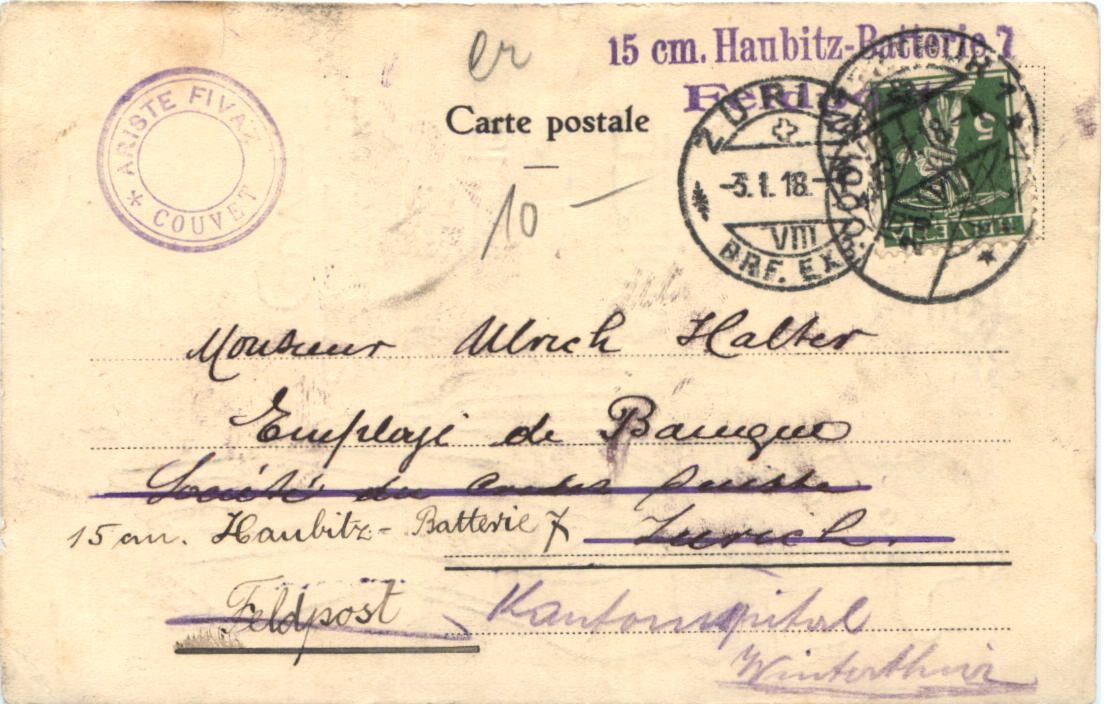 er
15 cm. Haubitz-Batterie 7
Feldpost
ARISTE FIVAZ
* COUVET
Carte postale
ZURICH
-3.1.18.-
VIII
BRF. EX
5
HELVETIA
10 -
Monsieur Ulrich Halter
Employé de Banque
Société du Crédit Suisse
15 cm. Haubitz-Batterie 7 Zurich.
Feldpost Kantonsspital
Winterthur